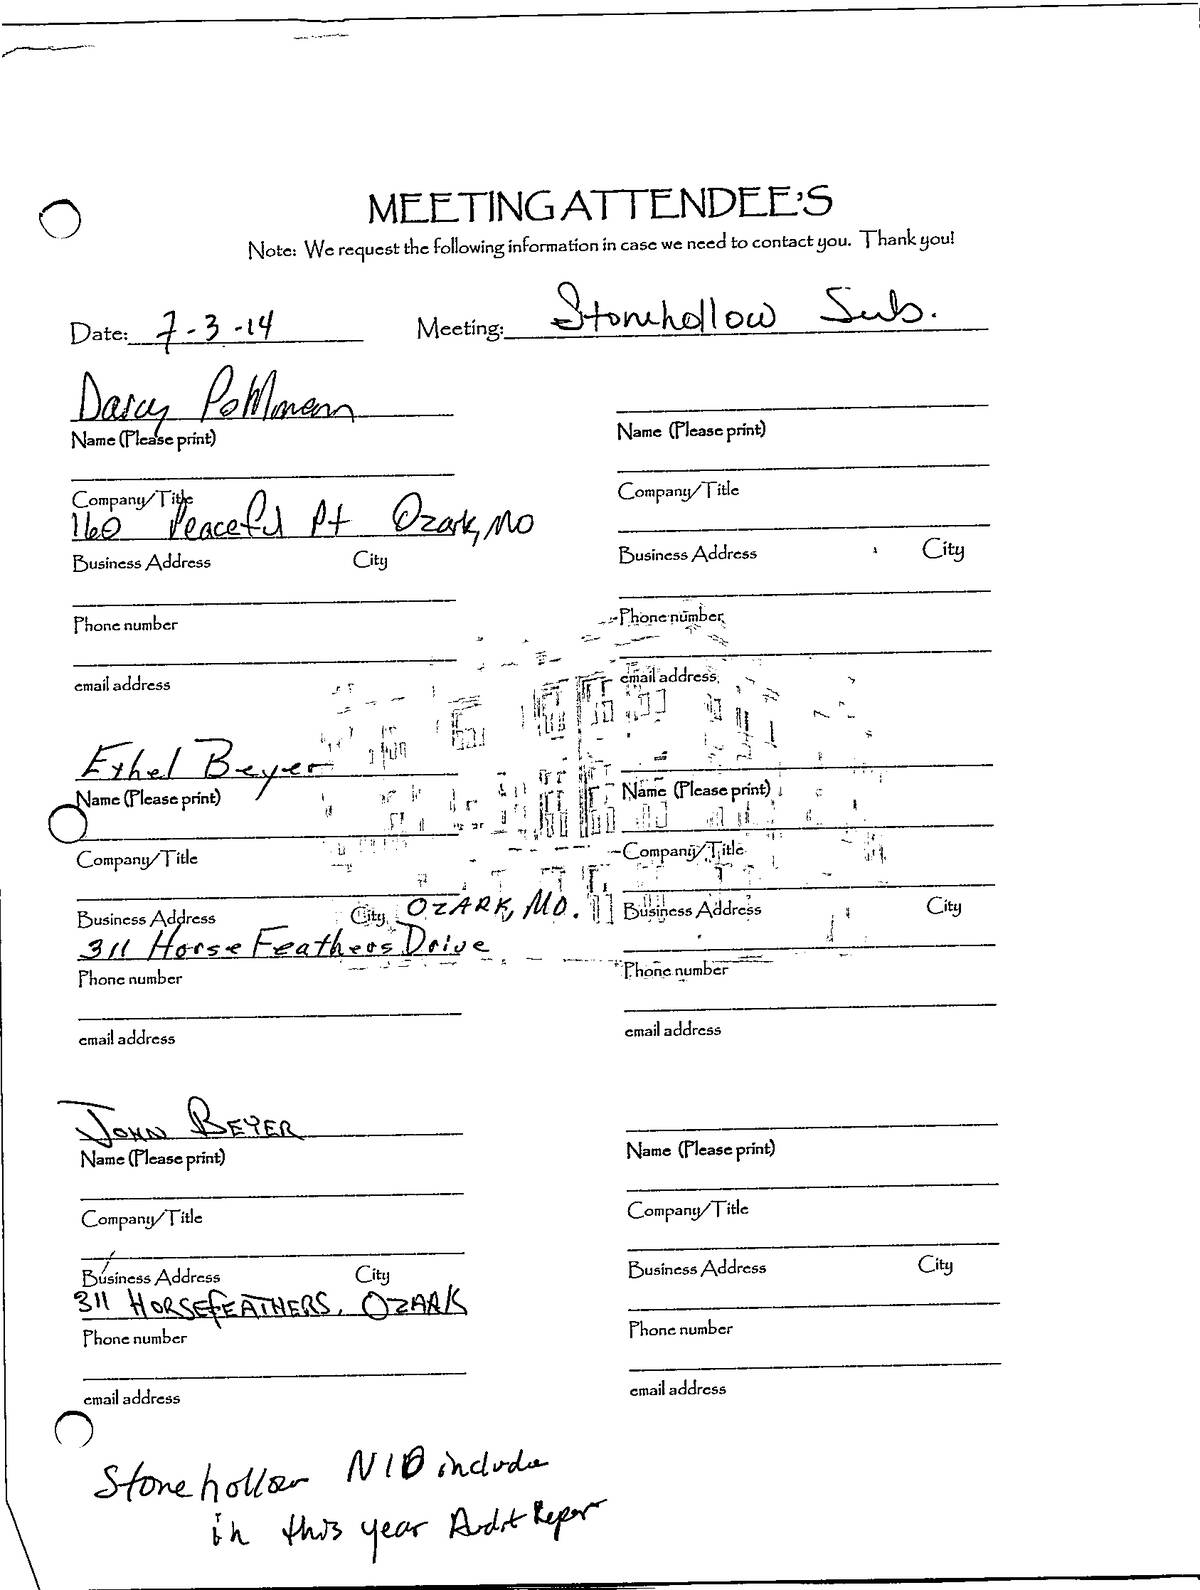 MEETING ATTENDEE'S
Note: We request the following information in case we need to contact you. Thank you!
Date: 7-3-14 Meeting: Stonehollow Sub.
Darcy Pohlmann
Name (Please print)
Company/Title
160 Peaceful Pt Ozark, MO
Business Address City
Phone number
email address
Ethel Beyer
Name (Please print)
Company/Title
OZARK, MO.
Business Address City
311 Horse Feathers Drive
Phone number
email address
JOHN BEYER
Name (Please print)
Company/Title
Business Address City
311 HORSEFEATHERS. OZARK
Phone number
email address
Name (Please print)
Company/Title
Business Address City
Phone number
email address
Name (Please print)
Company/Title
Business Address City
Phone number
email address
Name (Please print)
Company/Title
Business Address City
Phone number
email address
Stonehollow NID include
in this year Audit Report